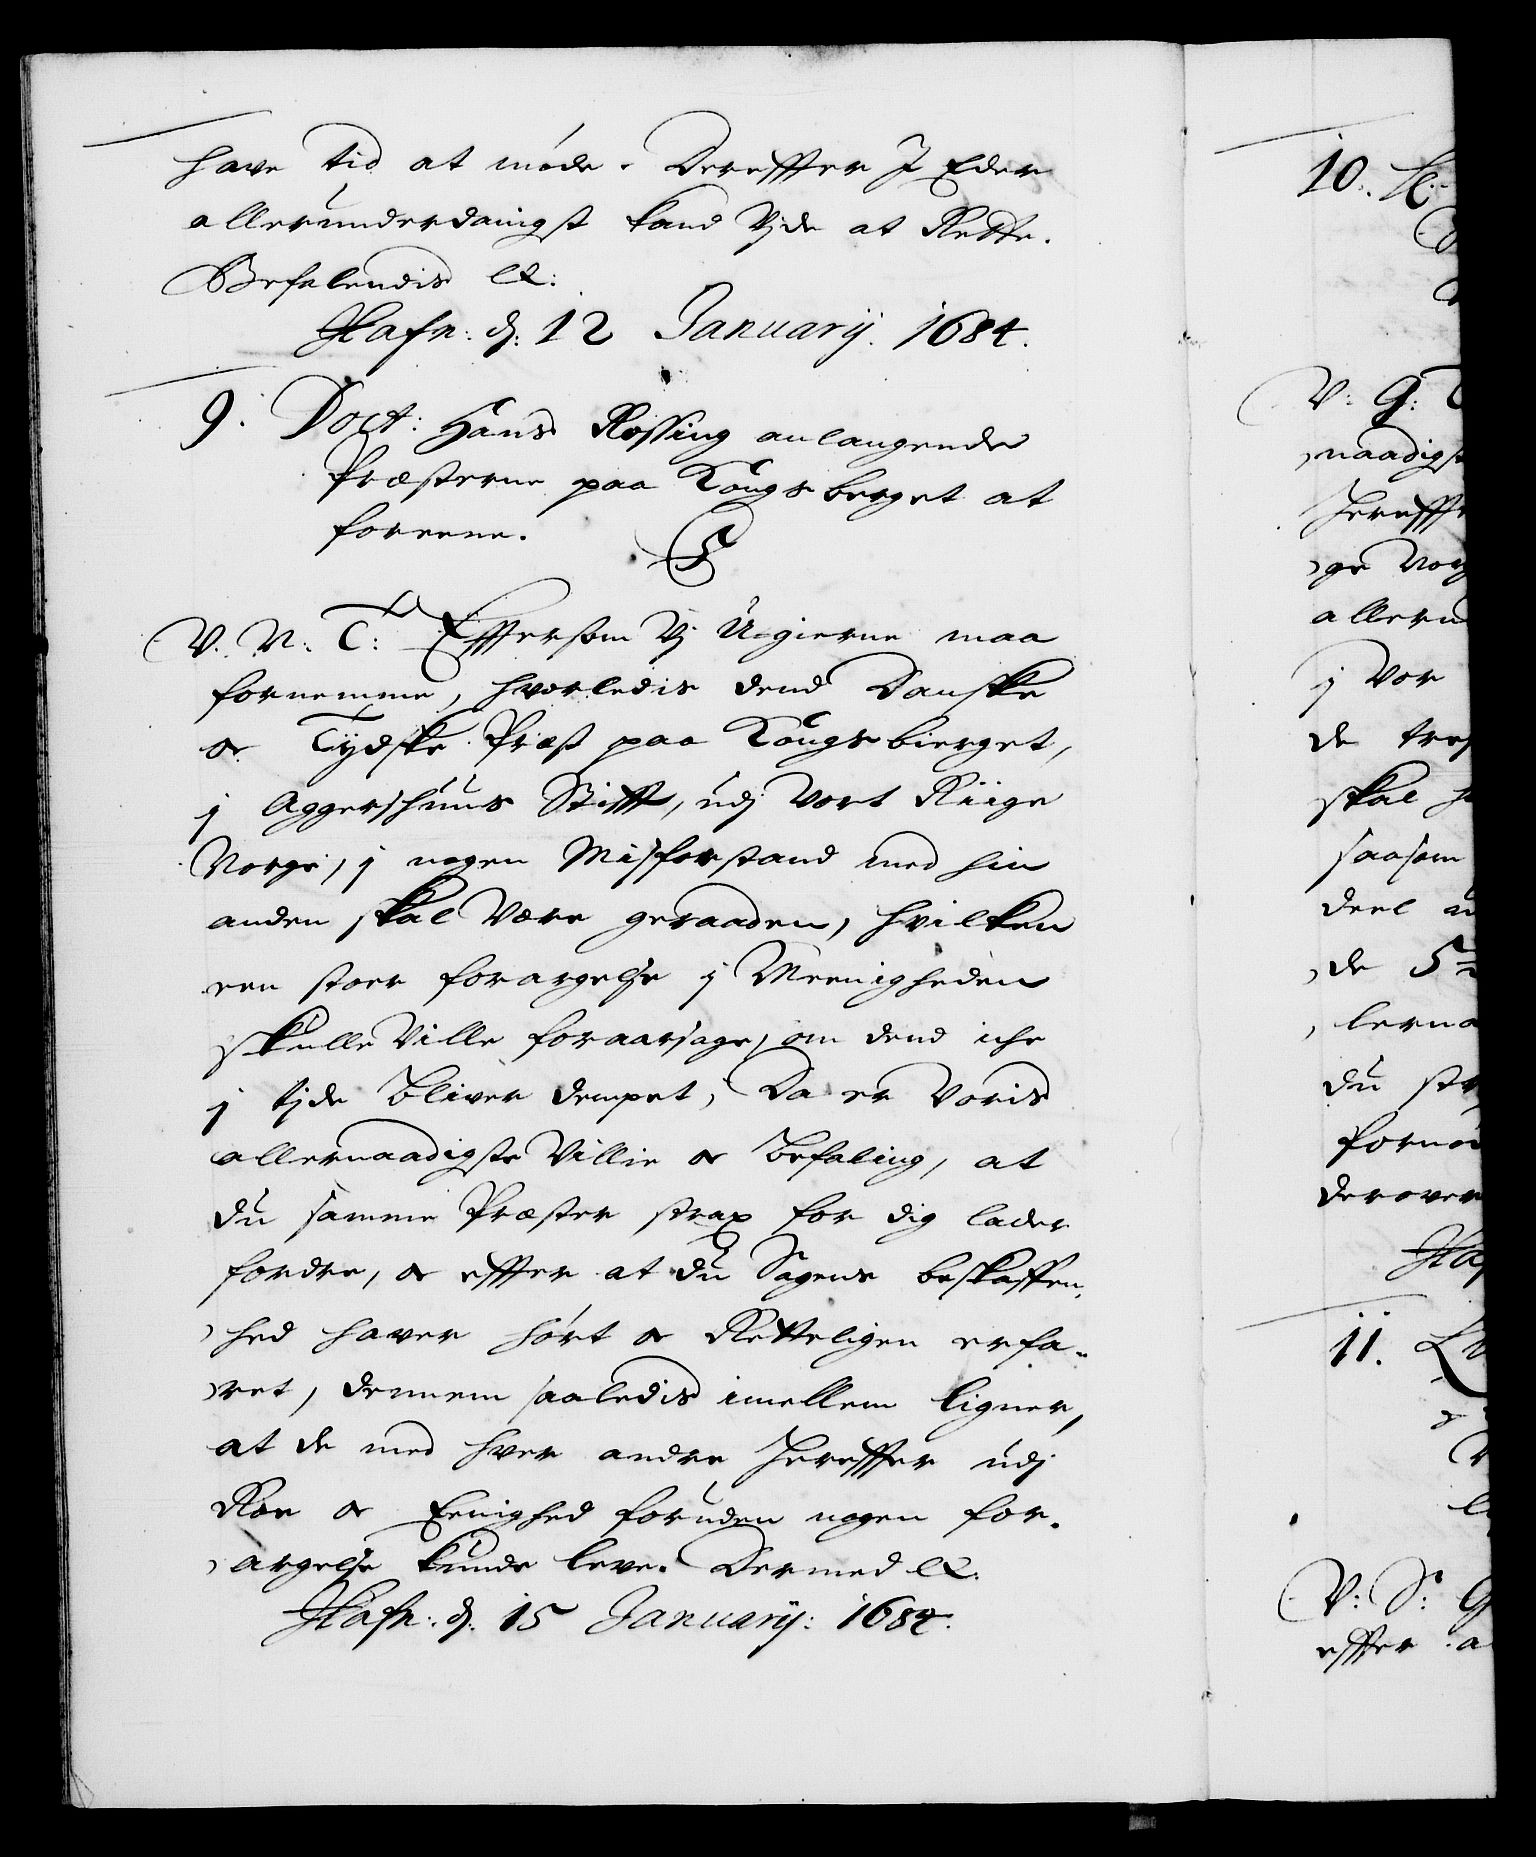 have tid at møde. Dereffter I Eder
allerunderdanigst kand Vjde at Rette.
Befalendis etc:
Hafn: d: 12 Januarij. 1684.
9. Doct: Hans Rossing anlangende
Præsterne paa Kongsberget at
foreene.
V. N. T: Efftersom Vj Ugierne maa
fornemme, hvorledis dend Danske
oc Tydske Præst paa Kongsbierget,
j Aggershuus Stifft, udj Vort Riige
Norge, j nogen Misforstand med hin
anden skal Være geraaden, hvilken
een stoer forargelse j Meenigheden
skulle Ville foraarsage, om dend iche
j tjde Bliver dempet, Da er Voris
allernaadigste Villie oc Befaling, at
du samme Præster strax for dig lader
fordre, oc effter at du Sagens beskaffen,
hed haver hørt oc Retteligen erfa-
ret, dennem saaledis imellem ligner,
at de med hver andre Hereffter udj
Roe oc Eenighed foruden nogen for-
argelse kunde leve. Dermed etc.
Hafn: d: 15 Januarij: 1684.
10.
V: G:
naadigst
Hereffte
ge Vor
allern
j Vor
de tres
skal
saasom
deel
de 5
lerna
du str
fornø
derover
Haf
11.
V: S: G
effter a